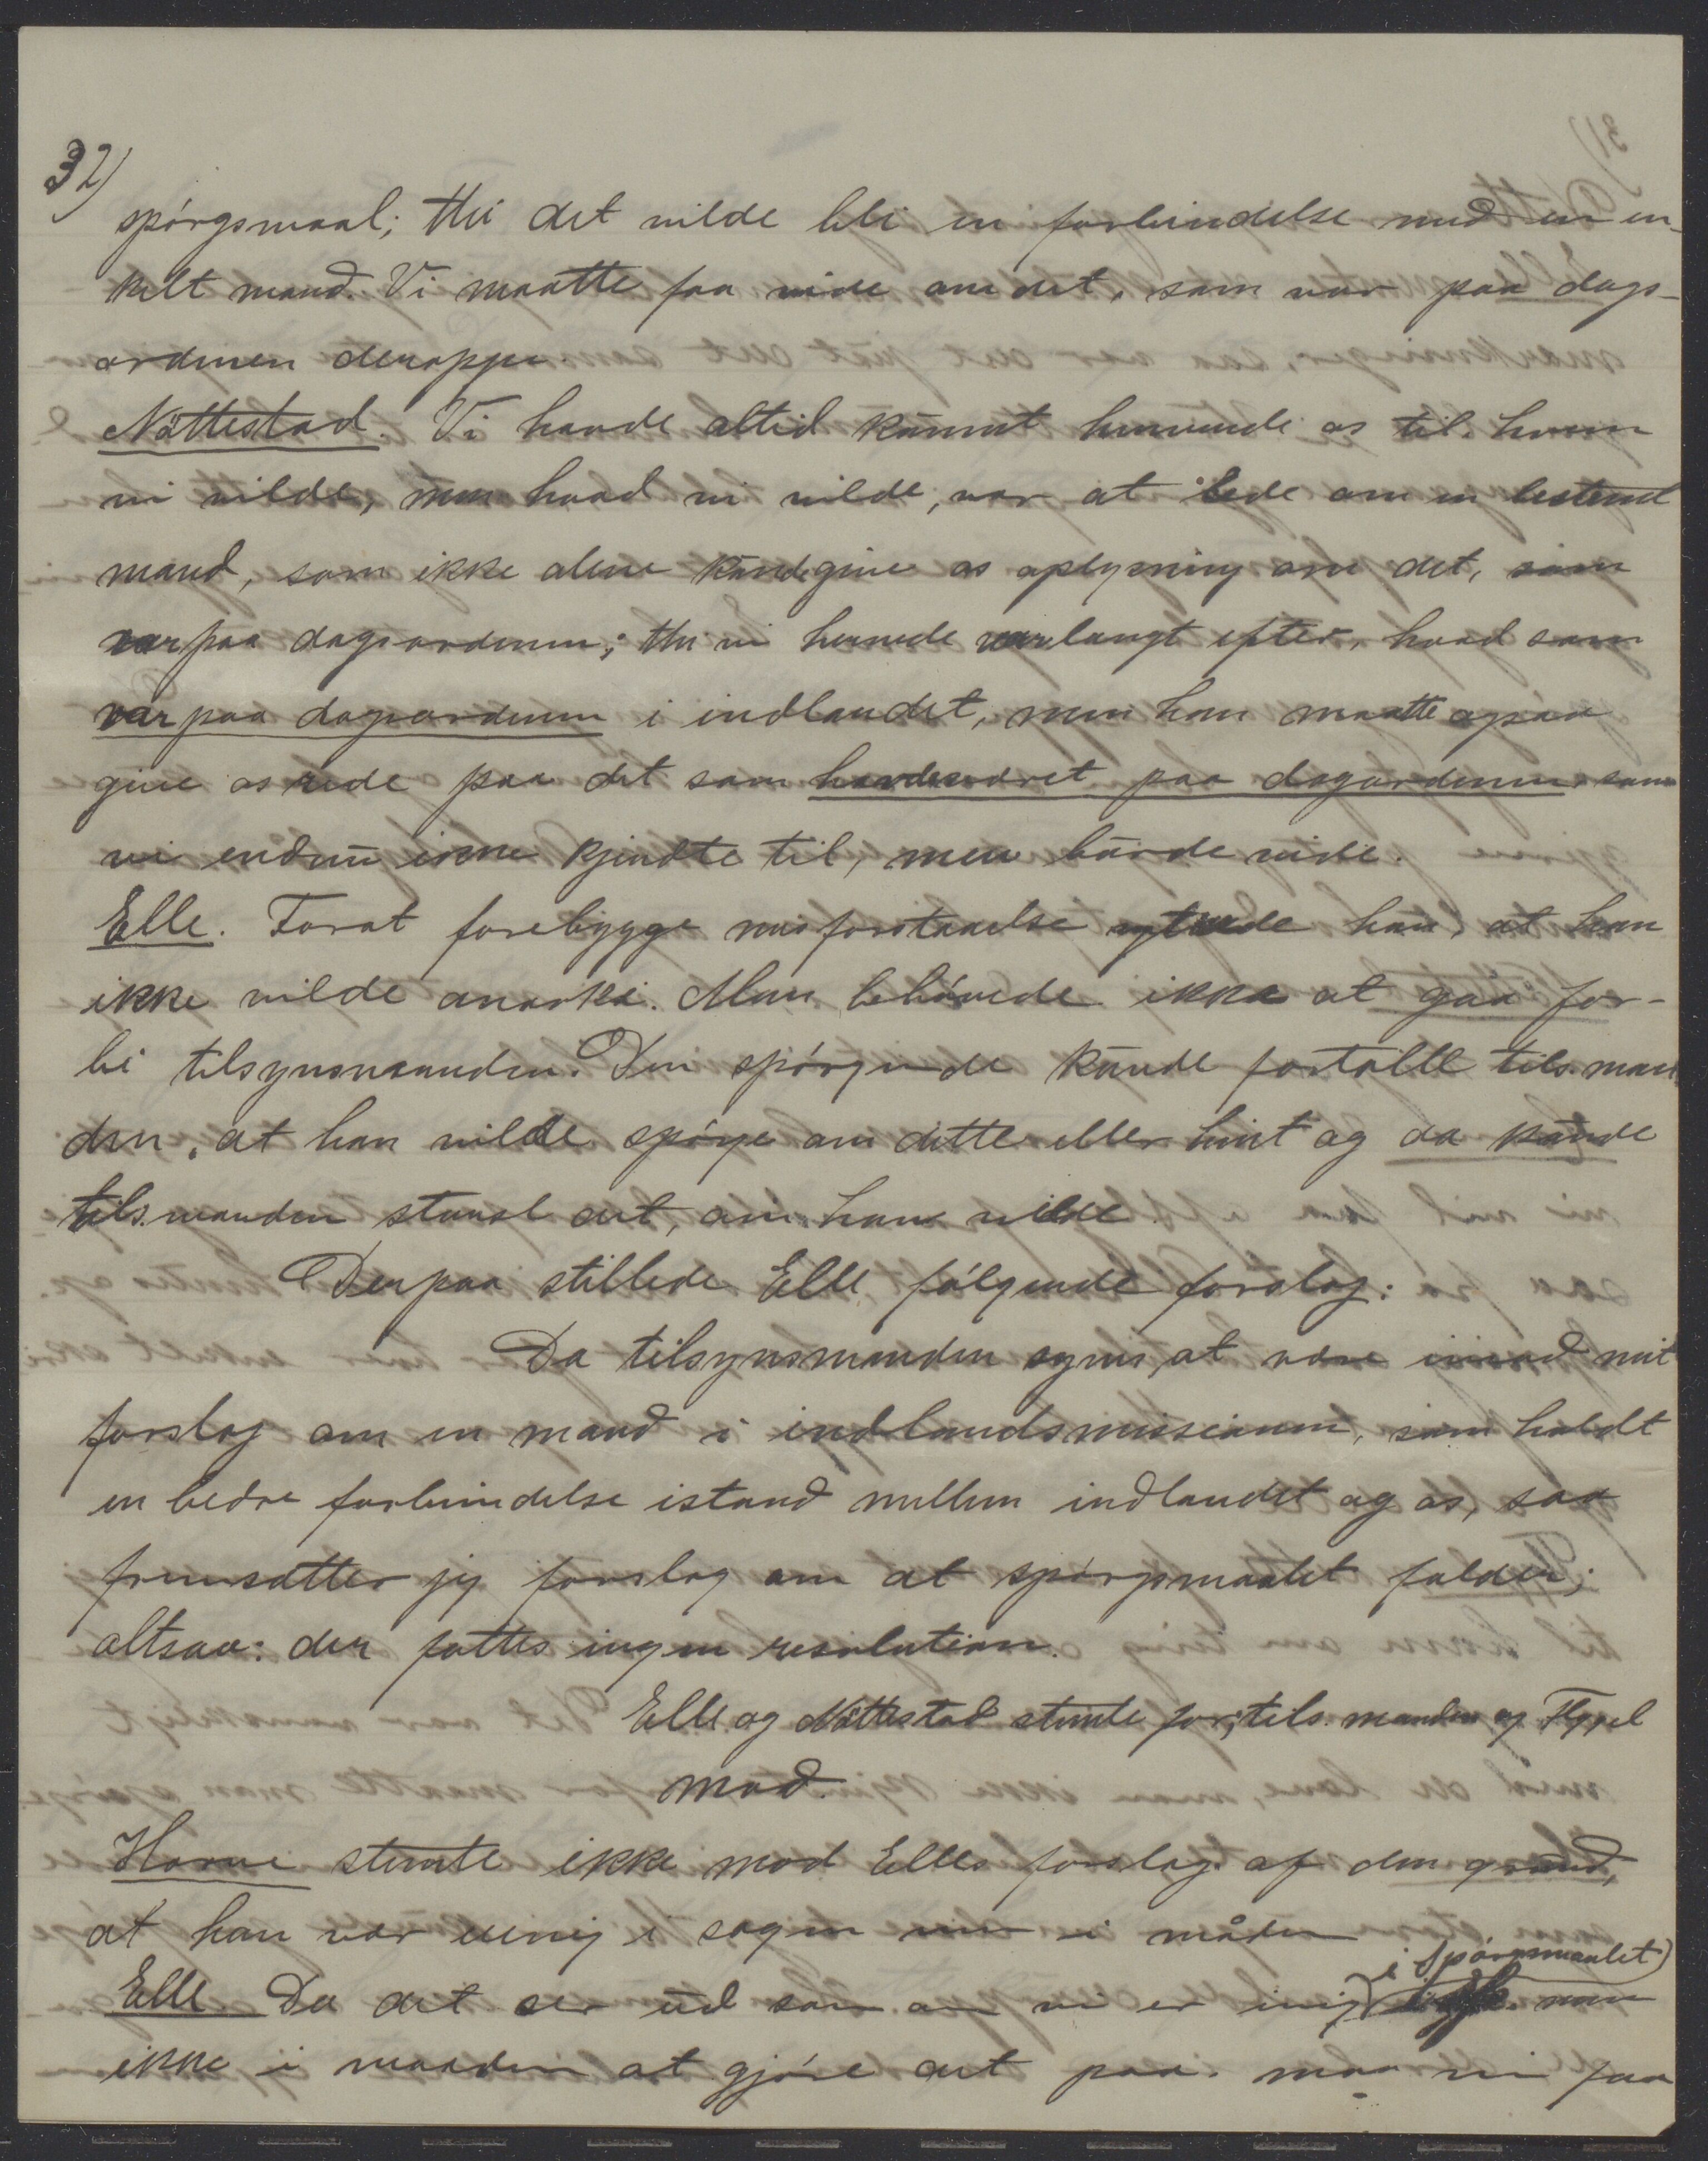 32)
spórgsmaal; thi det vilde bli en forbindelse med en en-
kelt mand. Vi maatte faa vide om det, som var paa dags-
ordenen deroppe
Nöttestad. Vi havde altid kunnet henvende os til hvem
vi vilde, men hvad vi vilde, var at bede om en bestemt
mand, som ikke alene kunde give os oplysning om det, som
var paa dagsordenen; thi vi hernede var langt efter, hvad som
var paa dagsordenen i indlandet, men han maatte ogsaa
give os rede paa det som havde vöret paa dagsordenen som
vi endnu ikke kjendte til, men burde vide.
Elle. Forat forebygge misforstaaelse ytrede han, at han
ikke vilde anarki. Man behóvede ikke at gaa for-
bi tilsynsmanden. Den spórgende kunde fortälle tils.man
den, at han vilde spórge om dette eller hint og da kunde
tils.manden stanse det, om han vilde.
Derpaa stillede Elle fólgende forslag:
Da tilsynsmanden synes, at være imod mit
forslag om en mand i indlandsmissionen, som holdt
en bedre forbindelse istand mellem indlandet og os, saa
fremsätter jeg forslag om at spórgsmaalet falder;
altsaa: der fattes ingen resolution.
Elle og Nöttestad stemte for; tils. manden og Flygel
mod.
Horne stemte ikke mod Elles forslag af den grund,
at han var uenig i sagen men i måden
i spórgsmaalet)
Elle. Da det ser ud som om vi er enig men
ikke i maaden at gjóre det paa. maa vi faa